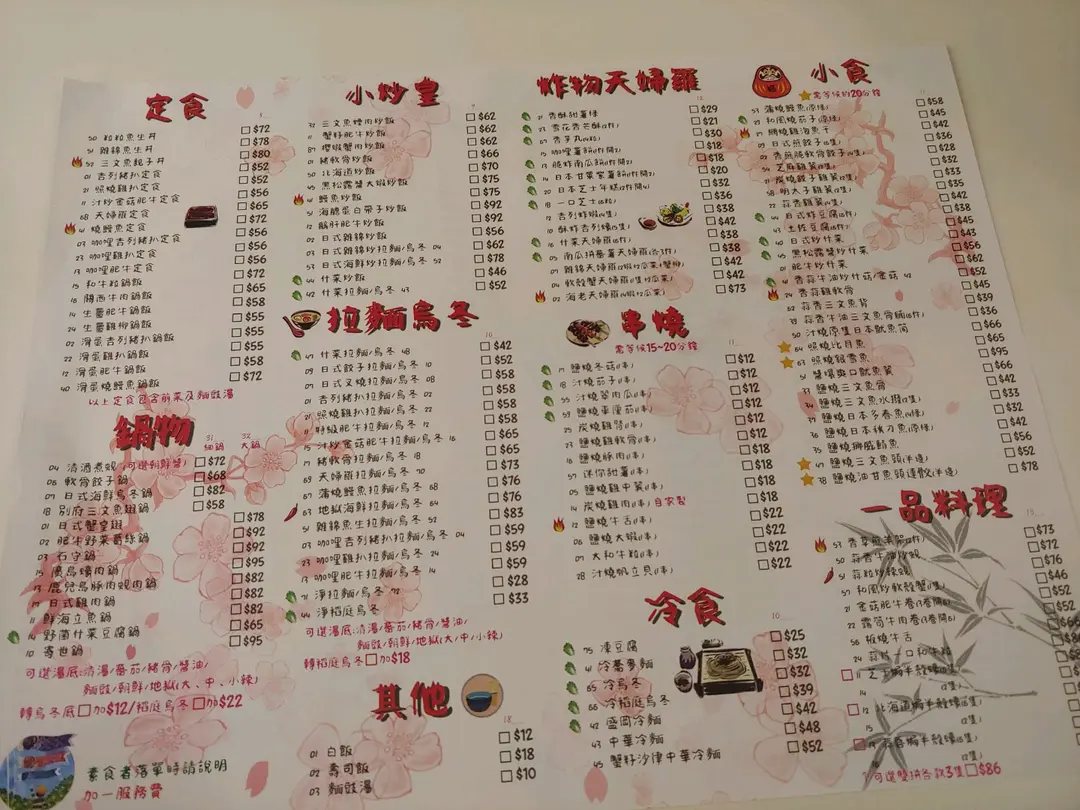 定食
50 粒粒魚生丼 $72
51 雜錦魚生丼 $78
52 三文魚親子丼 $80
01 吉列豬扒定食 $52
21 照燒雞扒定食 $52
11 汁炒金菇肥牛定食 $56
68 天婦羅定食 $65
41 燒鰻魚定食 $72
03 咖哩吉列豬扒定食 $56
23 咖哩雞扒定食 $56
13 咖哩肥牛定食 $56
15 和牛粒鍋飯 $72
16 關西牛肉鍋飯 $65
14 生薑肥牛鍋飯 $58
24 生薑雞柳鍋飯 $55
02 滑蛋吉列豬扒鍋飯 $55
22 滑蛋雞扒鍋飯 $55
12 滑蛋肥牛鍋飯 $58
40 滑蛋燒鰻魚鍋飯 $72
以上定食包含前菜及麵豉湯
鍋物
31 細鍋 32 大鍋
04 清酒煮蜆(可選朝鮮醬) $72
06 軟骨餃子鍋 $68
07 日式海鮮烏冬鍋 $82
18 別府三文魚翅鍋 $58
01 日式蟹皇翅 $78
02 肥牛野菜葛絲鍋 $92
03 石守鍋 $92
15 廣島蠔肉鍋 $95
13 鹿兒島豚肉蜆肉鍋 $82
17 日式雞肉鍋 $82
11 鮮海立魚鍋 $82
14 野菌什菜豆腐鍋 $65
10 寄世鍋 $95
可選湯底:清湯/蕃茄/豬骨/醬油/
麵豉/朝鮮/地獄(大、中、小辣)
轉烏冬底 加$12/稻庭烏冬 加$22
素食者落單時請說明
加一服務費
小炒皇
32 三文魚燻肉炒飯 $62
11 蟹籽肥牛炒飯 $62
櫻蝦蟹肉炒飯 $62
01 豬軟骨炒飯 $66
50 北海道炒飯 $70
45 黑松露醬大蝦炒飯 $75
41 鰻魚炒飯 $75
51 海膽蛋白帶子炒飯 $92
12 鵝肝肥牛炒飯 $92
02 日式雜錦炒飯 $56
03 日式雜錦炒拉麵/烏冬 04 $62
53 日式海鮮炒拉麵/烏冬 52 $78
44 什菜炒飯 $46
42 什菜炒拉麵/烏冬 43 $52
拉麵烏冬
47 什菜拉麵/烏冬 48 $42
09 日式餃子拉麵/烏冬 10 $52
07 日式叉燒拉麵/烏冬 08 $58
01 吉列豬扒拉麵/烏冬 02 $58
21 照燒雞扒拉麵/烏冬 22 $58
11 特級肥牛拉麵/烏冬 12 $58
15 汁炒金菇肥牛拉麵/烏冬 16 $65
17 豬軟骨拉麵/烏冬 18 $65
69 天婦羅拉麵/烏冬 70 $73
67 蒲燒鰻魚拉麵/烏冬 68 $76
63 地獄海鮮拉麵/烏冬 64 $76
51 雜錦魚生拉麵/烏冬 52 $83
03 咖哩吉列豬扒拉麵/烏冬 04 $59
23 咖哩雞扒拉麵/烏冬 24 $59
13 咖哩肥牛拉麵/烏冬 14 $59
71 淨拉麵/烏冬 72 $28
44 淨稻庭烏冬 $33
可選湯底:清湯/蕃茄/豬骨/醬油/
麵豉/朝鮮/地獄(大/中/小辣)
轉稻庭烏冬 加$18
其他
01 白飯 $12
02 壽司飯 $18
03 麵豉湯 $10
炸物天婦羅
21 香酥甜薯條 $29
23 雪花香芒酥 $21
07 香芋丸 $30
15 咖哩薯餅 $18
13 脆炸南瓜餅 $18
14 日本甘栗家薯餅 $20
20 日本芝士年糕 $32
18 一口芝士 $36
12 吉列炸蝦 $38
10 酥炸吉列蠔 $42
16 什菜天婦羅 $38
05 南瓜拼番薯天婦羅 $38
07 雜錦天婦羅 $42
04 軟殼蟹天婦羅 $52
02 海老天婦羅 $73
串燒
需等候15~20分鐘
17 鹽燒冬菇(1串) $12
18 汁燒茄子(1串) $12
55 汁燒翠肉瓜(1串) $12
59 鹽燒車厘茄(1串) $12
25 炭燒雞腎(1串) $12
23 鹽燒雞軟骨(1串) $12
16 鹽燒豚肉(1串) $18
57 迷你甜薯(1串) $18
05 鹽燒雞中翼(1串) $18
14 炭燒雞肉(1串) 自家製 $18
12 鹽燒牛舌(1串) $22
06 鹽燒大蝦(1串) $22
07 大和牛粒(1串) $22
28 汁燒帆立貝(1串) $22
冷食
75 凍豆腐 $25
41 冷蕎麥麵 $32
65 冷烏冬 $32
66 冷稻庭烏冬 $39
42 盛岡冷麵 $42
43 中華冷麵 $48
45 蟹籽沙律中華冷麵 $52
小食
需等候約20分鐘
57 蒲燒鰻魚(原條) $58
和風燒茄子(原條) $45
鋼燒雞泡魚干 $42
日式煎餃子 $36
香煎脆軟骨餃子 $28
54 芝麻雞翼 $32
炭燒餃子雞翼 $33
58 明太子雞翼 $35
22 蒜香雞翼 $42
44 日式炸豆腐 $38
43 土佐豆腐 $45
40 日式炒什菜 $43
45 黑松露醬炒什菜 $56
01 肥牛炒什菜 $62
41 香蒜牛油炒什菇/金菇 42 $52
24 香蒜雞軟骨 $45
32 蒜香三文魚背 $39
33 蒜香牛油三文魚骨腩 $36
50 汁燒原隻日本魷魚筒 $66
64 照燒比目魚 $65
63 照燒銀雪魚 $95
51 醬爆與口魷魚翼 $66
33 鹽燒三文魚骨 $42
34 鹽燒三文魚水腩 $33
37 鹽燒日本多春魚 $32
36 鹽燒日本秋刀魚(原條) $42
35 鹽燒挪威鯖魚 $56
47 鹽燒三文魚頭(半邊) $52
38 鹽燒油甘魚頭連鮫(半邊) $78
一品料理
53 $73
50 蒜香牛油炒蜆 $72
51 蒜粒炒辣蜆 $76
57 和風炒軟殼蟹 $46
21 金菇肥牛卷 $52
22 露筍牛肉卷 $52
56 板燒牛舌
24 蒜片一口和牛粒
11 芝士焗半殼蠔
14
12 北海道焗半殼蠔
15
蒜蓉焗半殼蠔
可選雙拼各款3隻 $86